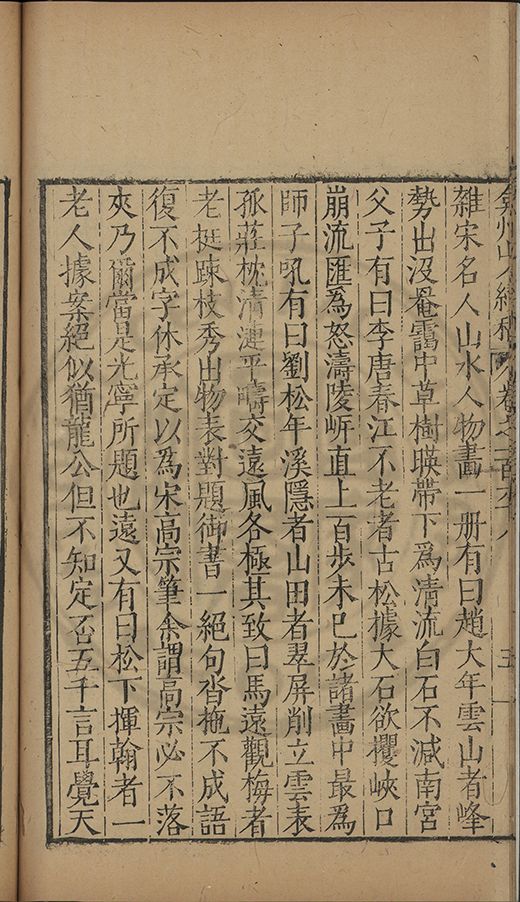 弇州山人續稿 卷之一百六十八 五
雜宋名人山水人物畫一册有曰趙大年雲山者峰
勢出沒罨靄中草樹暎帶下爲清流白石不減南宮
父子有曰李唐春江不老者古松據大石欲攫峽口
崩流匯爲怒濤陵岓直上百步未巳於諸畫中最爲
師子吼有曰劉松年溪隱者山田者翠屏削立雲表
孤莊枕清漣平疇交遠風各極其致曰馬遠觀梅者
老挺踈枝秀出物表對題御書一絕句沓拖不成語
復不成字休承定以爲宋高宗筆余謂高宗必不落
夾乃爾當是光寧所題也遠又有曰松下揮翰者一
老人據案絕似猶龍公但不知定否五千言耳覺天